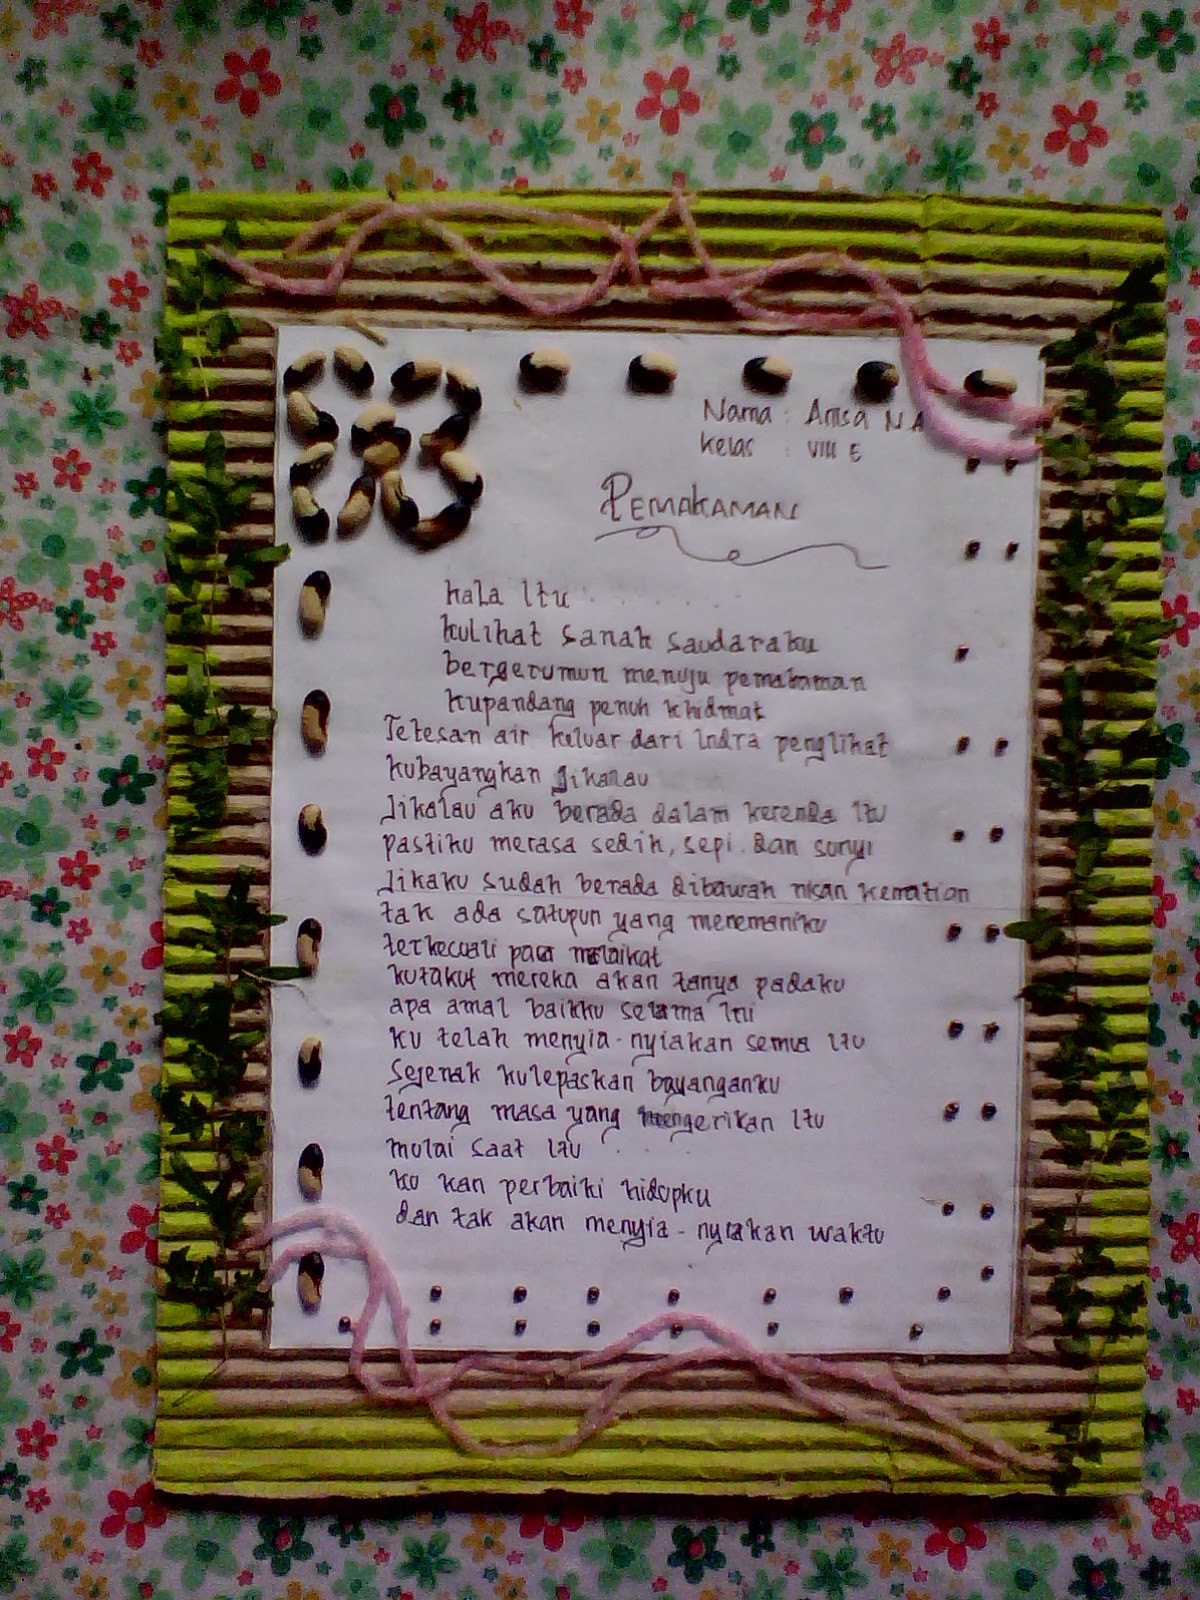 Nama : Anisa N.A
Kelas : VIII E
PEMAKAMAN
kala Itu . . . . . .
kulihat sanak saudaraku
bergerumun menuju pemakaman
kupandang penuh khidmat
Tetesan air keluar dari Indra penglihat
kubayangkan Jikalau
Jikalau aku berada dalam kerenda Itu
pastiku merasa sedih, sepi. dan sunyi
Jikaku sudah berada dibawah nisan kematian
tak ada satupun yang menemaniku
terkecuali para malaikat
kutakut mereka akan tanya padaku
apa amal baikku selama Ini
ku telah menyia-nyiakan semua Itu
Sejenak kulepaskan bayanganku
tentang masa yang mengerikan Itu
mulai saat Itu . . . .
ku kan perbaiki hidupku
dan tak akan menyia-nyiakan waktu